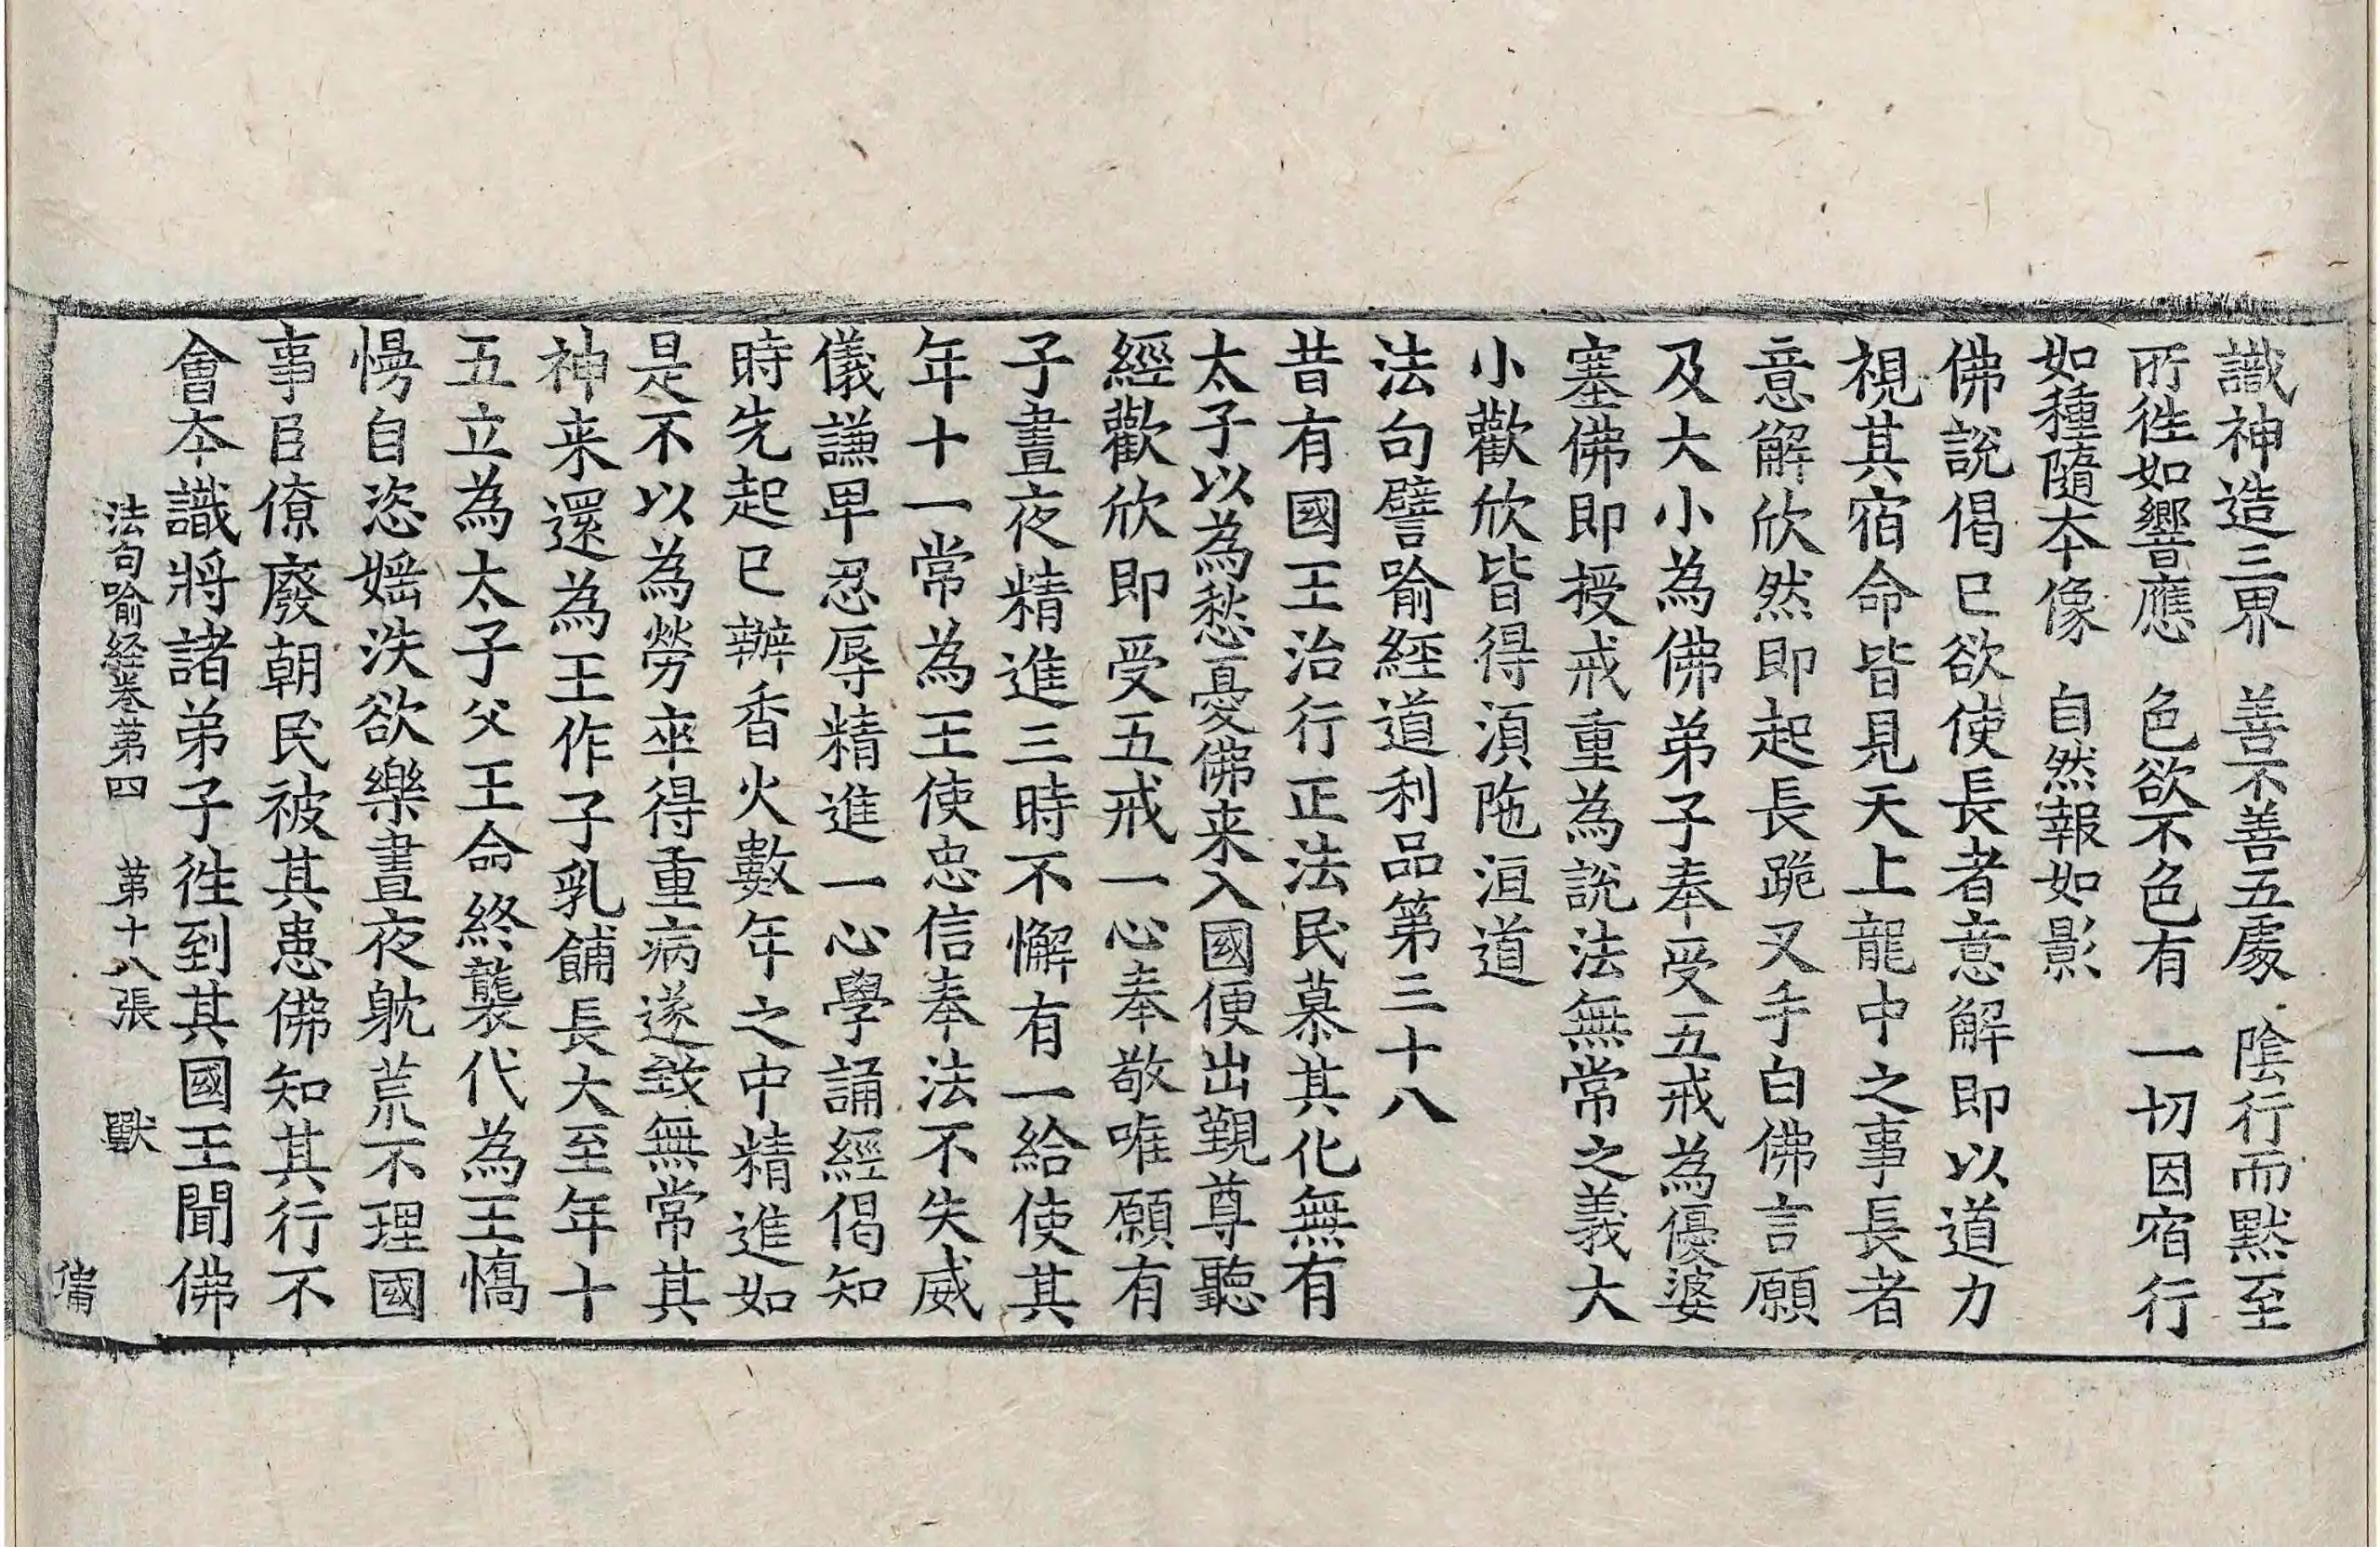 識神造三界　善不善五處　陰行而默至
所徃如響應　色欲不色有　一切因宿行
如種隨夲像　自然報如影
佛說偈已欲使長者意解即以道力
視其宿命皆見天上龍中之事長者
意解欣然即起長跪叉手白佛言願
及大小為佛弟子奉受五戒為優婆
塞佛即授戒重為說法無常之義大
小歡欣皆得湏陁洹道
法句譬喻經道利品第三十八
昔有國王治行正法民慕其化無有
太子以為愁憂佛来入國便出覲尊聽
經歡欣即受五戒一心奉敬唯願有
子晝夜精進三時不懈有一給使其
年十一常為王使忠信奉法不失威
儀謙卑忍辱精進一心學誦經偈知
時先起已辦香火數年之中精進如
是不以為勞卒得重病遂致無常其
神来還為王作子乳餔長大至年十
五立為太子父王命終襲代為王憍
慢自恣婬泆欲樂晝夜躭荒不理國
事臣僚廢朝民被其患佛知其行不
會夲識將諸弟子徃到其國王聞佛
法句喻経卷苐四　苐十八張　獸
備